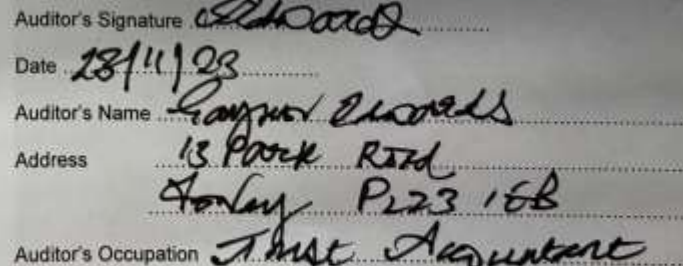 Auditor's Signature GEdwards
Date 28/11/23
Auditor's Name Gaynor Edwards
Address 13 Park Road
Fowey PL23 1EB
Auditor's Occupation Trust Accountant